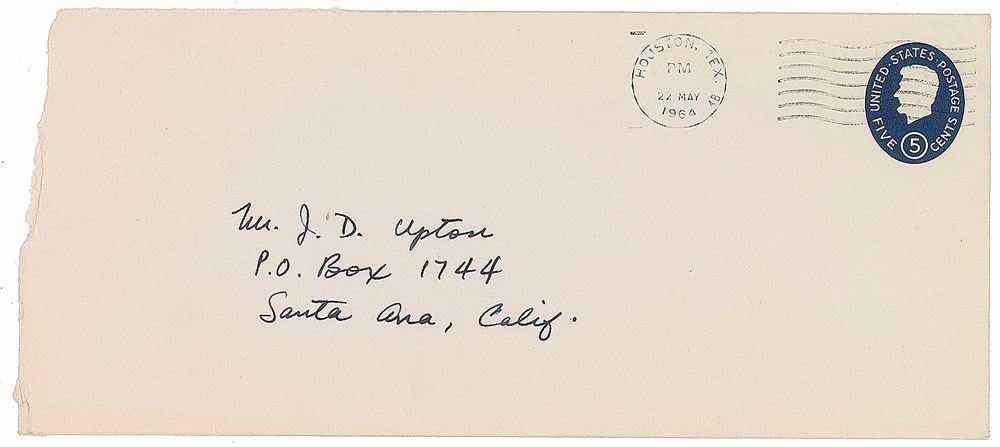 HOUSTON, TEX.
PM
22 MAY
1964
18
UNITED·STATES·POSTAGE
FIVE 5 CENTS
Mr. J. D. Upton
P.O. Box 1744
Santa Ana, Calif.